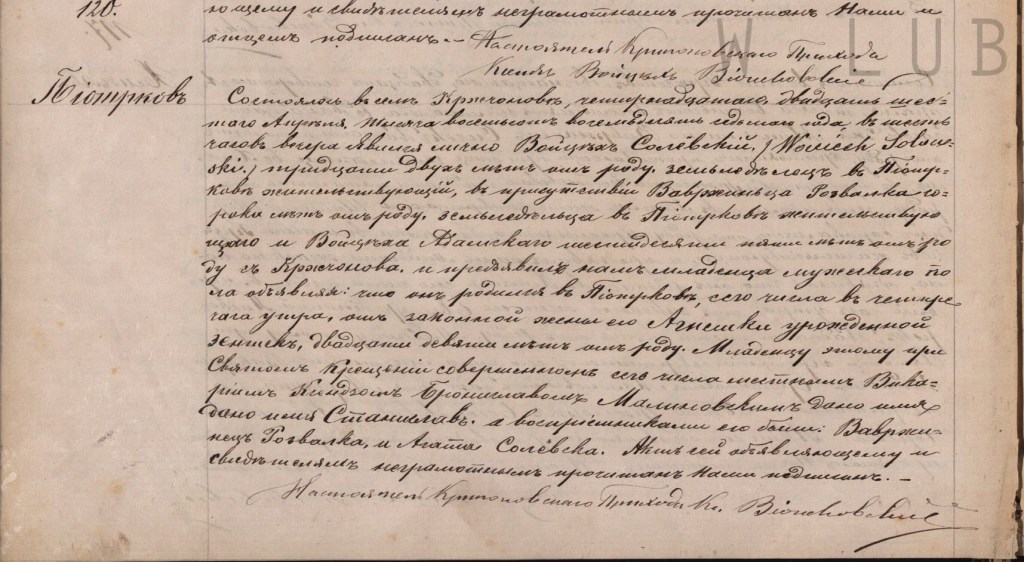 120.
ющему и свидѣтелямъ неграмотнымъ прочитанъ Нами и
отцемъ подписанъ. — Настоятель Кржчоновскаго Прихода
Ксендзъ Войцѣхъ
W LUB
Піотрковъ
Состоялось въ селѣ Кржчоновѣ, четырнадцатаго, двадцать шес-
таго Апрѣля, тысяча восемьсотъ восемьдесятъ седьмаго года, въ шесть
часовъ вечера явился лично Войцѣхъ Солёвскій, /Woiciech Solow-
ski./ тридцати двухъ лѣтъ отъ роду, земледѣлецъ въ Піотр-
ковѣ жительствующій, въ присутствіи Вавржиньца Розвалка со-
рока лѣтъ отъ роду, земледѣльца въ Піотрковѣ жительствую
щаго и Войцѣха Адамскаго шестидесяти пяти лѣтъ отъ ро-
ду съ Кржчонова. и предъявилъ намъ младенца мужескаго по
ла объявляя: что онъ родился въ Піотрковѣ, сего числа въ четыре
часа утра, отъ законной жены его Агнешки урожденной
двадцати девяти лѣтъ отъ роду. Младенцу этому при
Святомъ Крещеніи совершенномъ сего числа мѣстнымъ Вика-
ріемъ Ксендзомъ Брониславомъ Малиновскимъ дано имя
дано имя Станиславъ. а воспріемниками его были: Вавржи-
нецъ Розвалка, и Агата Солёвска. Актъ сей объявляющему и
свидѣтелямъ неграмотнымъ прочитанъ Нами подписанъ. —
Настоятель Кржчоновскаго Прихода Кс.